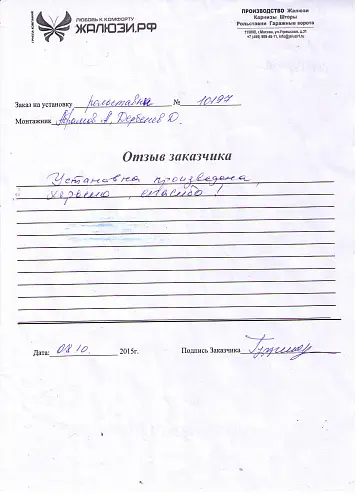 ЛЮБОВЬ К КОМФОРТУ
ЖАЛЮЗИ.РФ
ПРОИЗВОДСТВО Жалюзи
Карнизы Шторы
Рольставни Гаражные ворота
Заказ на установку рольставни № 10197
Монтажник А, Дербенев Д.
Отзыв заказчика
Установка произведена,
хорошо, спасибо!
Дата: 08.10. 2015г. Подпись Заказчика